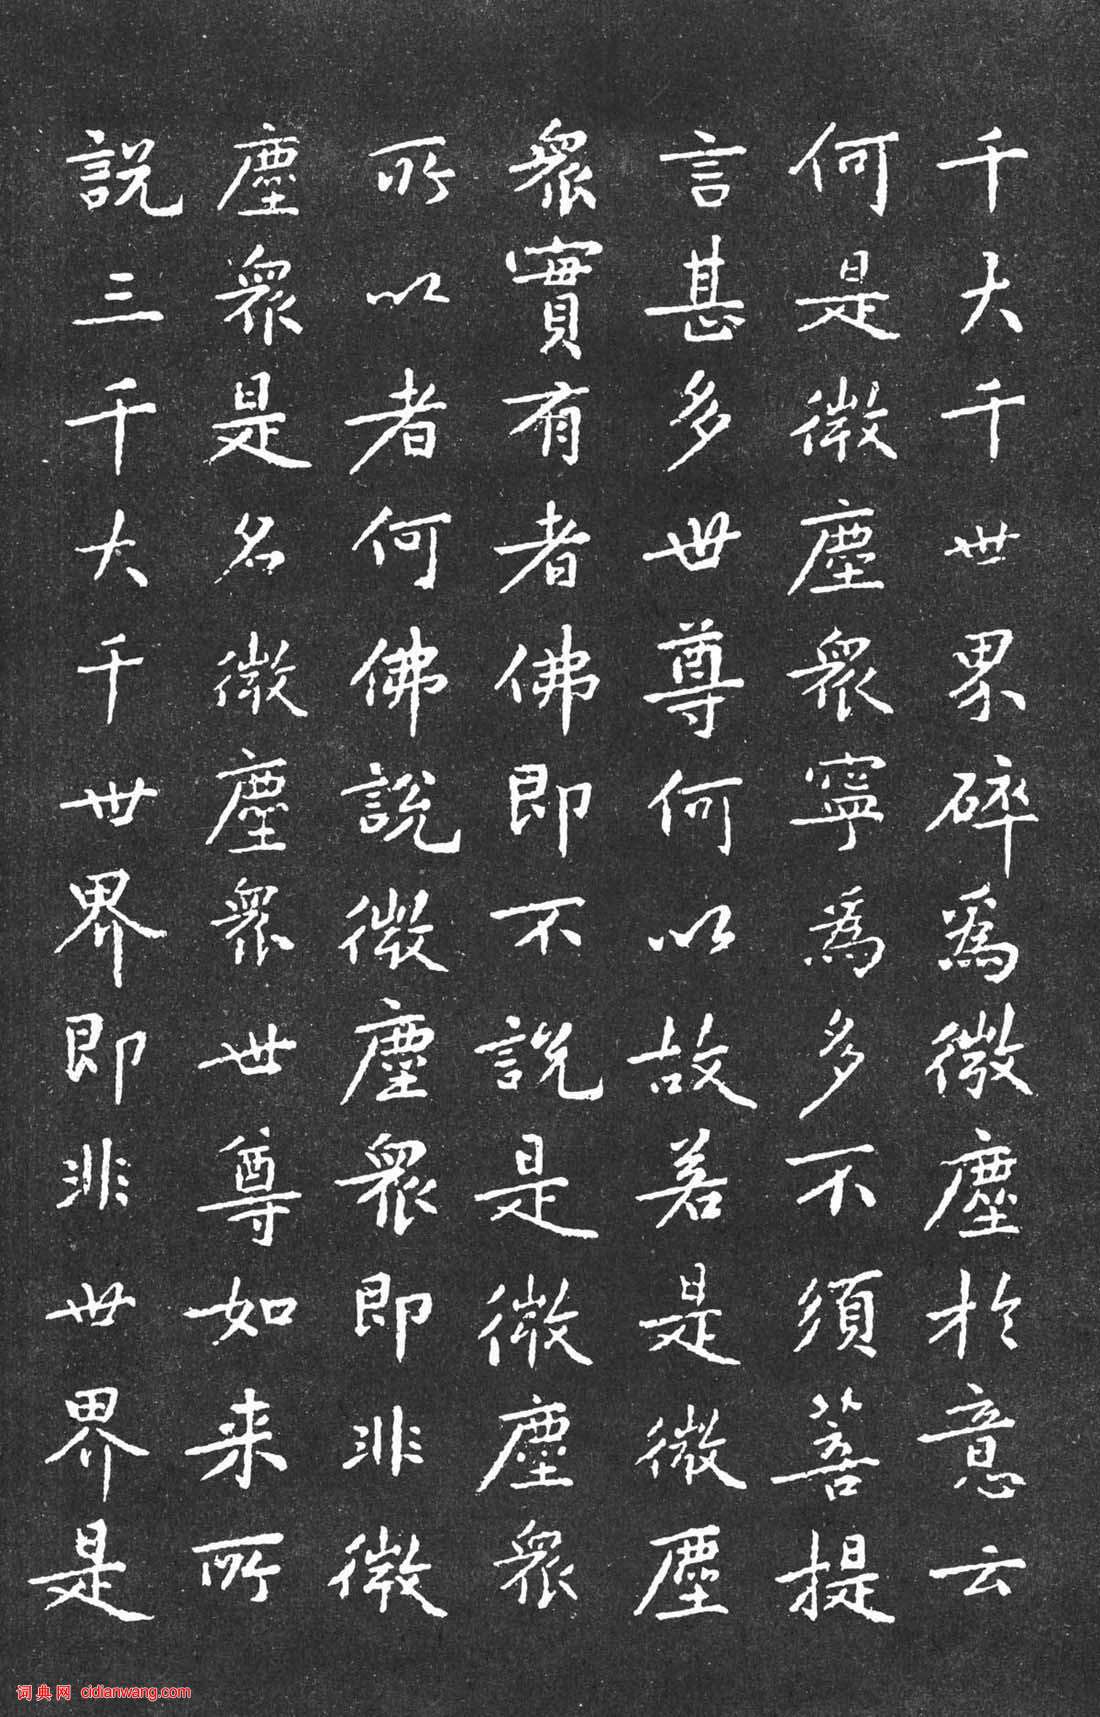 千大千世界碎為微塵於意云
何是微塵眾寧為多不須菩提
言甚多世尊何以故若是微塵
眾實有者佛即不說是微塵眾
所以者何佛說微塵眾即非微
塵眾是名微塵眾世尊如来所
說三千大千世界即非世界是
词典网 cidianwang.com